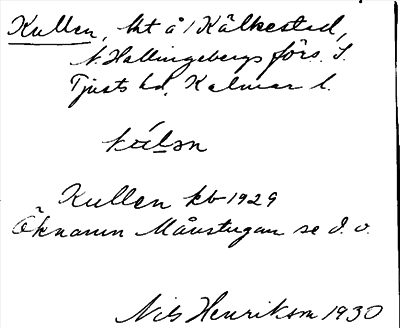 Kullen, lht å 1 Kälkestad,
N. Hallingebergs förs. S.
Tjusts hd, Kalmar l.
kúlɘn
Kullen kb 1929
Öknamn Månstugan se d. o.
Nils Henrikson 1930